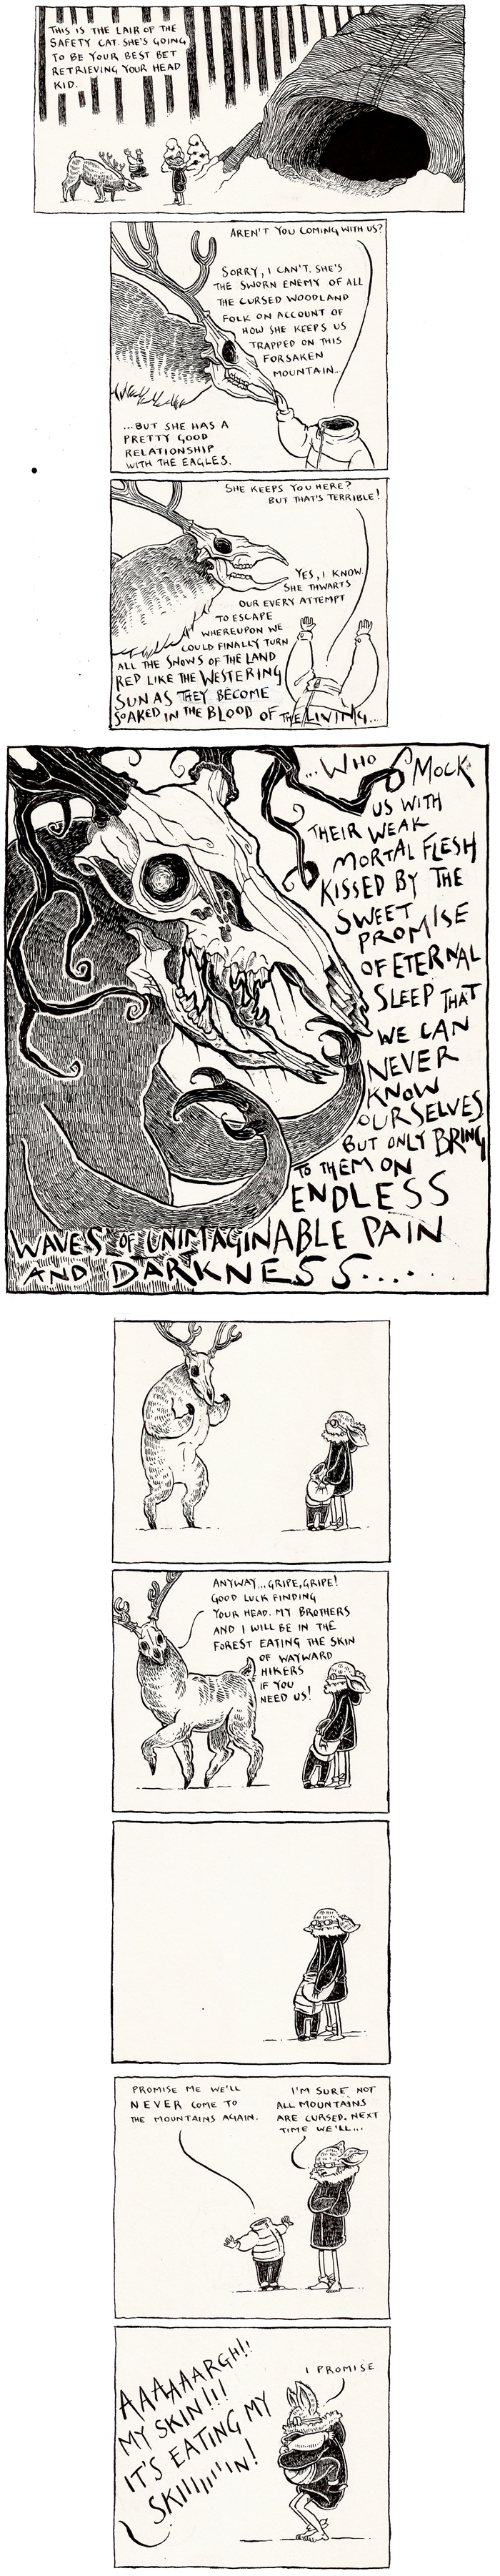 THIS IS THE LAIR OF THE
SAFETY CAT. SHE'S GOING
TO BE YOUR BEST BET
RETRIEVING YOUR HEAD
KID.
AREN'T YOU COMING WITH US?
SORRY, I CAN'T. SHE'S
THE SWORN ENEMY OF ALL
THE CURSED WOODLAND
FOLK ON ACCOUNT OF
HOW SHE KEEPS US
TRAPPED ON THIS
FORSAKEN
MOUNTAIN..
...BUT SHE HAS A
PRETTY GOOD
RELATIONSHIP
WITH THE EAGLES.
SHE KEEPS YOU HERE?
BUT THAT'S TERRIBLE!
YES, I KNOW.
SHE THWARTS
OUR EVERY ATTEMPT
TO ESCAPE
WHEREUPON WE
COULD FINALLY TURN
ALL THE SNOWS OF THE LAND
RED LIKE THE WESTERING
SUN AS THEY BECOME
SOAKED IN THE BLOOD OF THE LIVING....
...WHO SMOCK
US WITH
THEIR WEAK
MORTAL FLESH
KISSED BY THE
SWEET
PROMISE
OF ETERNAL
SLEEP THAT
WE CAN
NEVER
KNOW
OURSELVES
BUT ONLY BRING
TO THEM ON
ENDLESS
WAVES OF UNIMAGINABLE PAIN
AND DARKNESS......
ANYWAY...GRIPE, GRIPE!
GOOD LUCK FINDING
YOUR HEAD. MY BROTHERS
AND I WILL BE IN THE
FOREST EATING THE SKIN
OF WAYWARD
HIKERS
IF YOU
NEED US!
PROMISE ME WE'LL
NEVER COME TO
THE MOUNTAINS AGAIN.
I'M SURE NOT
ALL MOUNTAINS
ARE CURSED. NEXT
TIME WE'LL...
AAAAAARGH!!
MY SKIN!!!
IT'S EATING MY
SKIIIIIIIN!
I PROMISE